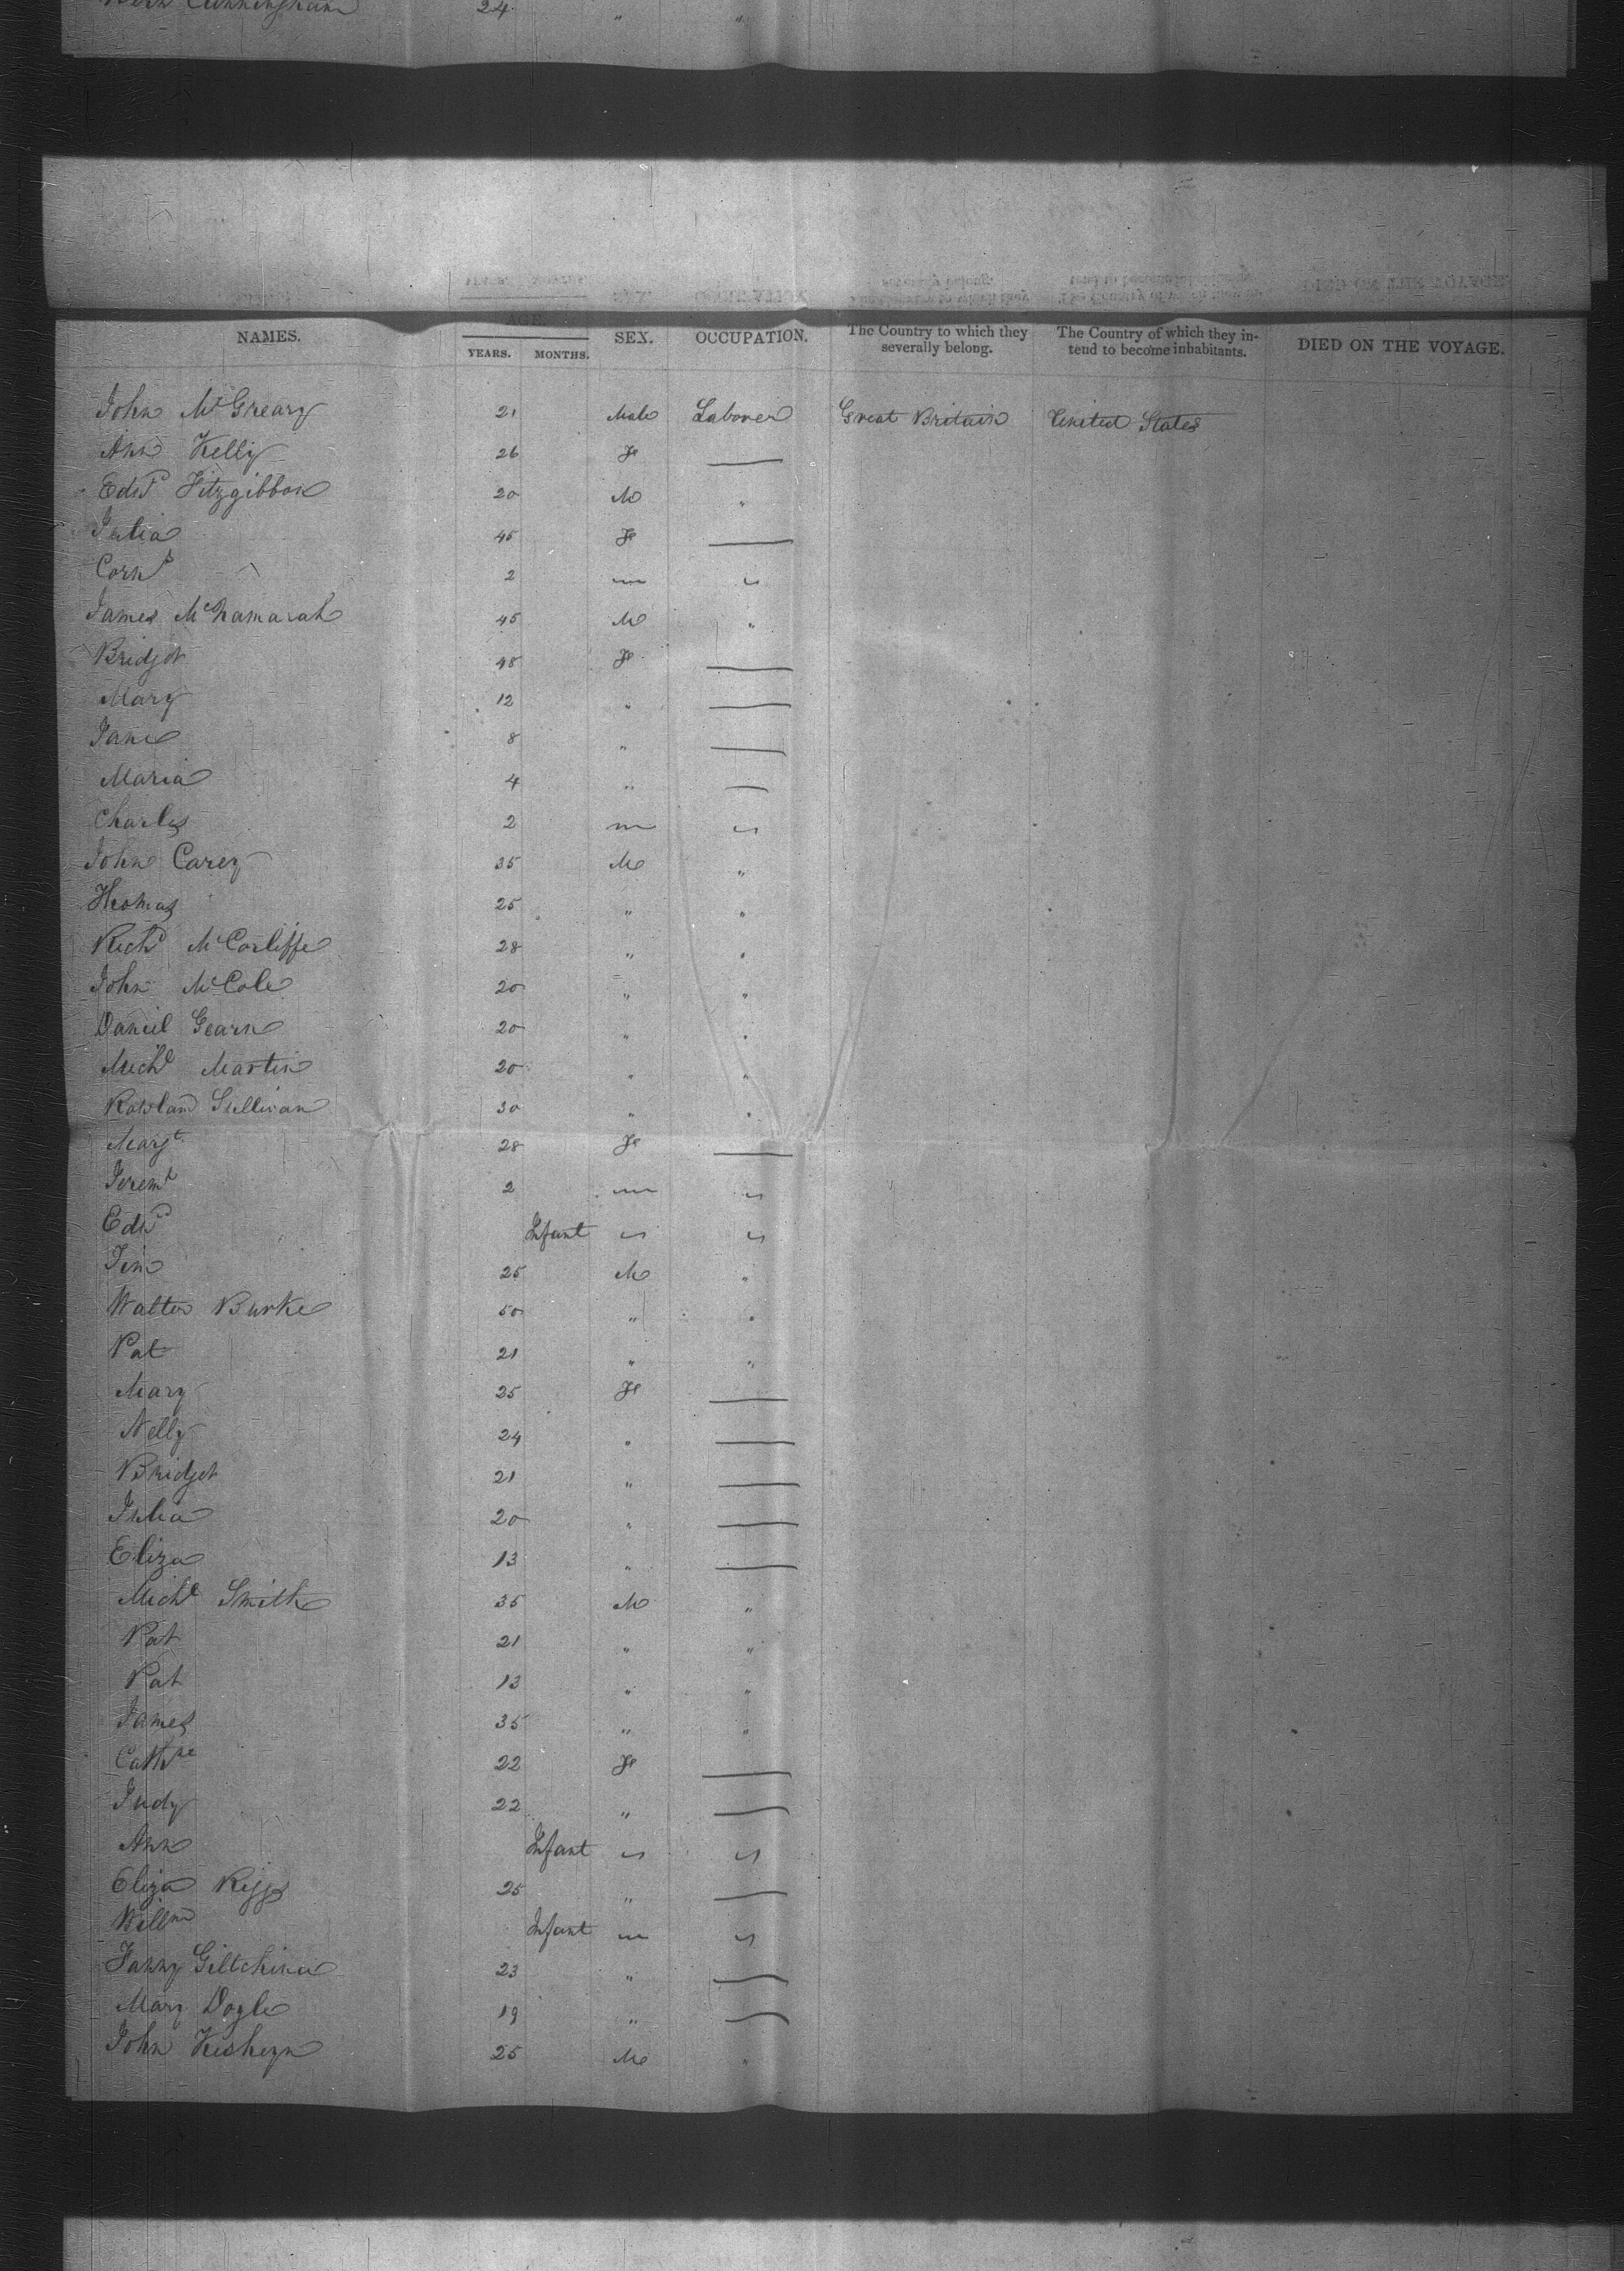 Cunningham 24 " "
NAMES. AGE. YEARS. MONTHS. SEX. OCCUPATION. The Country to which they severally belong. The Country of which they intend to become inhabitants. DIED ON THE VOYAGE.
John McGreary 21 Male Laborer Great Britain United States
Ann Kelly 26 Fe —
Edwd Fitzgibbon 20 M "
Julia 45 Fe —
Corns 2 — "
James McNamarah 45 M "
Bridget 48 Fe —
Mary 12 " —
Jane 8 " —
Maria 4 " —
Charles 2 m "
John Carey 35 M "
Thomas 25 " "
Richd McCorliffe 28 " "
John McCole 20 " "
Daniel Gearn 20 " "
Michl Martin 20 " "
Rowland Sullivan 30 " "
Margt 28 Fe —
Jeremh 2 m "
Edwd Infant " "
Jim 25 M "
Walter Burke 50 " "
Pat 21 " "
Mary 25 Fe —
Nelly 24 " —
Bridget 21 " —
Julia 20 " —
Eliza 13 " —
Michl Smith 35 M "
Pat 21 " "
Pat 13 " "
James 35 " "
Cathne 22 Fe —
Judy 22 " —
Ann Infant " "
Eliza Riggs 25 " —
Willm Infant m "
Fanny 23 " —
Mary Doyle 19 " —
John 25 M "